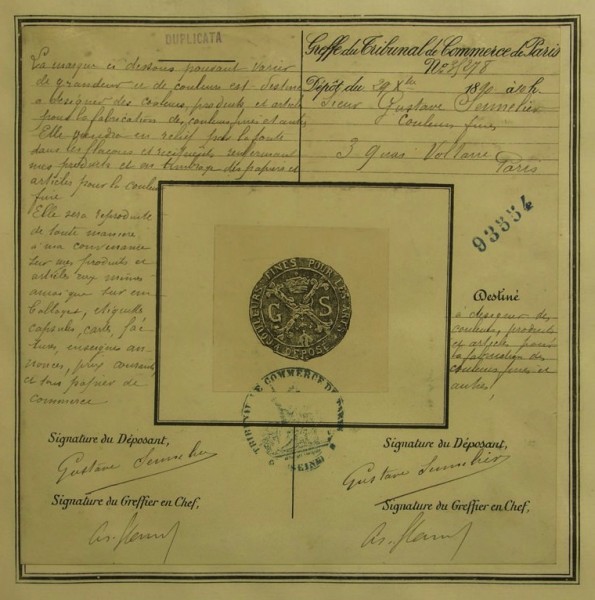 DUPLICATA
La marque ci dessous pouvant varier
de grandeur et de couleurs est destinée
a désigner des couleurs, produits et articles
pour la fabrication des couleurs fines et autres
Elle viendra en relief par la fonte
dans les flacons et récipients renfermant
mes produits et en timbrage des papiers et
articles pour la couleur
fine
Elle sera reproduite
de toute manière
à ma convenance
sur mes produits et
articles eux mêmes
ainsi que sur em
ballages, étiquettes
capsules, cartes, fac
tures, enseignes an
nonces, prix courants
et tous papiers de
commerce
Signature du Déposant,
Gustave Sennelier
Signature du Greffier en Chef,
Greffe du Tribunal de Commerce de Paris
Dépôt du 29 Xbre 1890 à h.
Sieur Gustave Sennelier
Couleurs fines
3 quai Voltaire
Paris
93554
Destiné
a désigner des
couleurs, produits
et articles pour
la fabrication des
couleurs fines et
autres
COULEURS FINES POUR LES ARTS
G S
DÉPOSÉ
TRIBUNAL DE COMMERCE DE PARIS
(SEINE)
Signature du Déposant,
Gustave Sennelier
Signature du Greffier en Chef,